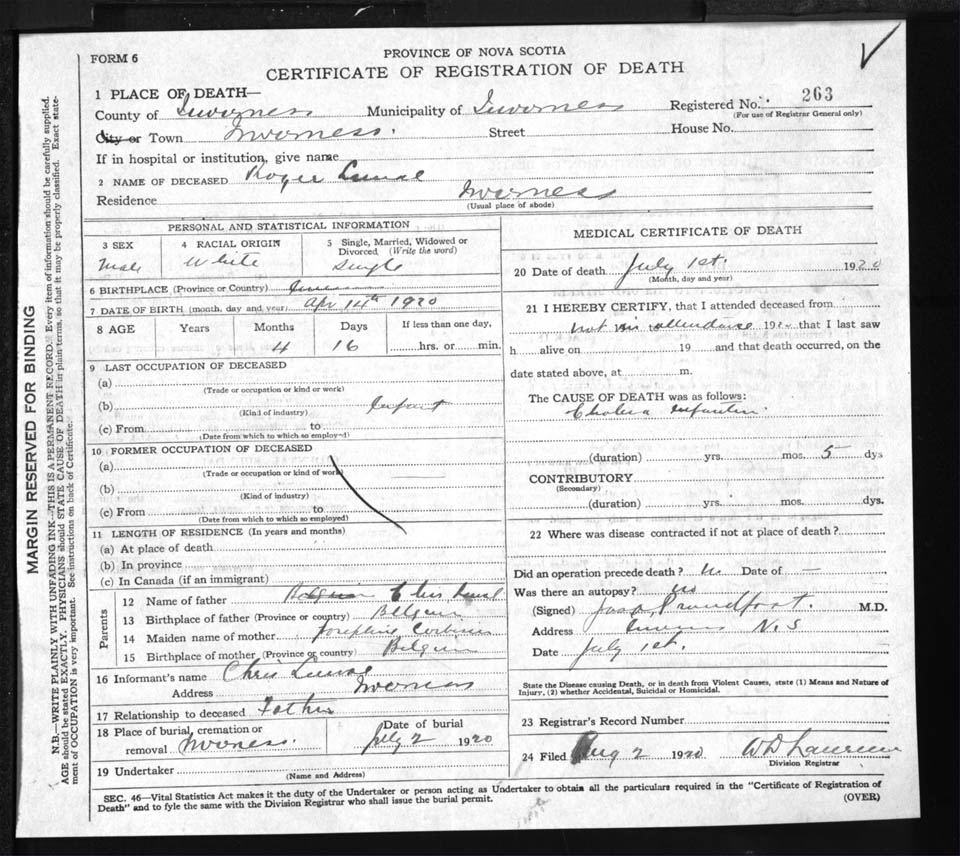 FORM 6
PROVINCE OF NOVA SCOTIA
CERTIFICATE OF REGISTRATION OF DEATH
1 PLACE OF DEATH—
County of Inverness Municipality of Inverness Registered No. 263
(For use of Registrar General only)
City or Town Inverness. Street House No.
If in hospital or institution, give name
2 NAME OF DECEASED Roger
Residence Inverness
(Usual place of abode)
PERSONAL AND STATISTICAL INFORMATION
3 SEX 4 RACIAL ORIGIN 5 Single, Married, Widowed or Divorced (Write the word)
Male White Single
6 BIRTHPLACE (Province or Country)
7 DATE OF BIRTH (month, day and year) Apr 14th 1920
8 AGE Years Months Days If less than one day,
4 16 hrs. or min.
9 LAST OCCUPATION OF DECEASED
(a)
(Trade or occupation or kind or work)
(b) Infant
(Kind of industry)
(c) From to
(Date from which to which so employed)
10 FORMER OCCUPATION OF DECEASED
(a)
(Trade or occupation or kind of work)
(b)
(Kind of industry)
(c) From to
(Date from which to which so employed)
11 LENGTH OF RESIDENCE (In years and months)
(a) At place of death
(b) In province
(c) In Canada (if an immigrant)
Parents
12 Name of father Chris
13 Birthplace of father (Province or country) Belgium
14 Maiden name of mother Josephine
15 Birthplace of mother (Province or country) Belgium
16 Informant's name Chris
Address Inverness
17 Relationship to deceased Father
18 Place of burial, cremation or removal Inverness. Date of burial July 2 1920
19 Undertaker
(Name and Address)
MEDICAL CERTIFICATE OF DEATH
20 Date of death July 1st. 1920
(Month, day and year)
21 I HEREBY CERTIFY, that I attended deceased from
not in attendance 19 that I last saw
h alive on 19 and that death occurred, on the
date stated above, at m.
The CAUSE OF DEATH was as follows:
Cholera Infantum.
(duration) yrs. mos. 5 dys
CONTRIBUTORY
(Secondary)
(duration) yrs. mos. dys.
22 Where was disease contracted if not at place of death?
Did an operation precede death? No Date of —
Was there an autopsy? No
(Signed) Proudfoot. M.D.
Address N.S
Date July 1st.
State the Disease causing Death, or in death from Violent Causes, state (1) Means and Nature of
Injury, (2) whether Accidental, Suicidal or Homicidal.
23 Registrar's Record Number
24 Filed Aug 2 1920
Division Registrar
SEC. 46—Vital Statistics Act makes it the duty of the Undertaker or person acting as Undertaker to obtain all the particulars required in the "Certificate of Registration of
Death" and to fyle the same with the Division Registrar who shall issue the burial permit.
(OVER)
MARGIN RESERVED FOR BINDING
N.B.—WRITE PLAINLY WITH UNFADING INK—THIS IS A PERMANENT RECORD. Every item of information should be carefully supplied.
AGE should be stated EXACTLY. PHYSICIANS should STATE CAUSE OF DEATH in plain terms, so that it may be properly classified. Exact state-
ment of OCCUPATION is very important. See instructions on back of Certificate.